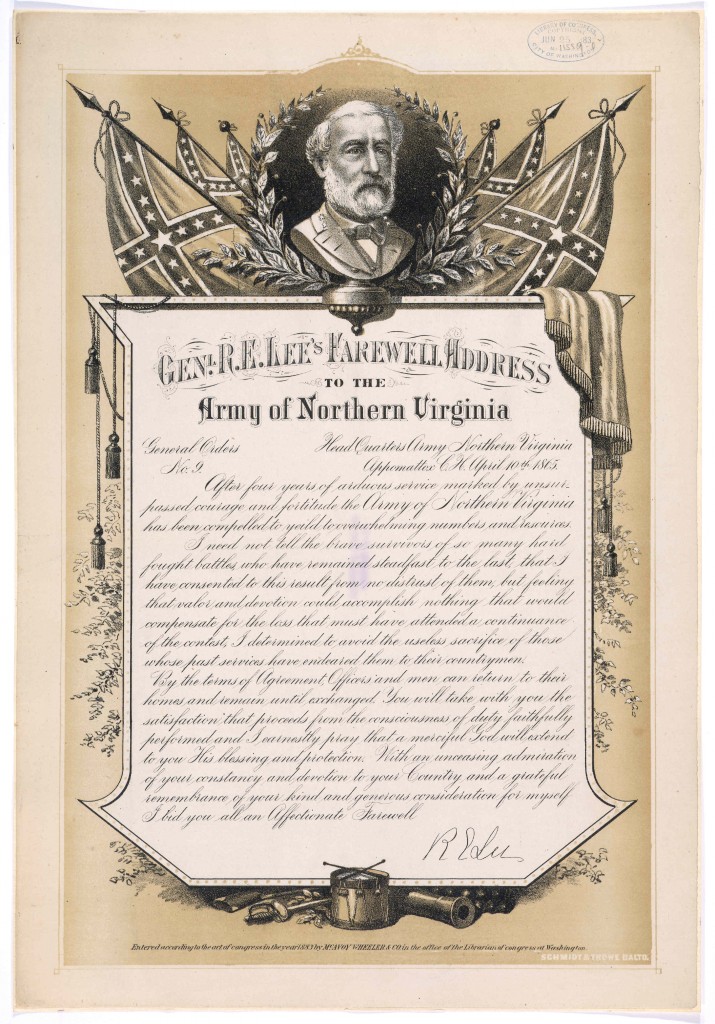 LIBRARY OF CONGRESS
COPYRIGHT
JUN 25
CITY OF WASHINGTON
GENL. R. E. LEE'S FAREWELL ADDRESS
TO THE
Army of Northern Virginia
General Orders Head Quarters Army Northern Virginia
No. 9. Appomattox C.H. April 10th 1865.
After four years of arduous service marked by unsur-
passed courage and fortitude the Army of Northern Virginia
has been compelled to yeild to overwhelming numbers and resources.
I need not tell the brave survivors of so many hard
fought battles, who have remained steadfast to the last, that I
have consented to this result from no distrust of them, but feeling
that valor and devotion could accomplish nothing that would
compensate for the loss that must have attended a continuance
of the contest, I determined to avoid the useless sacrifice of those
whose past services have endeared them to their countrymen.
By the terms of Agreement, Officers and men can return to their
homes and remain until exchanged. You will take with you the
satisfaction that proceeds from the consciousness of duty faithfully
performed and I earnestly pray that a merciful God will extend
to you His blessing and protection. With an unceasing admiration
of your constancy and devotion to your Country and a grateful
remembrance of your kind and generous consideration for myself
I bid you all an Affectionate Farewell
R E Lee
Entered according to the act of congress in the year 1883 by McAVOY WHEELER & CO. in the office of the Librarian of congress at Washington.
SCHMIDT & TROWE BALTO.